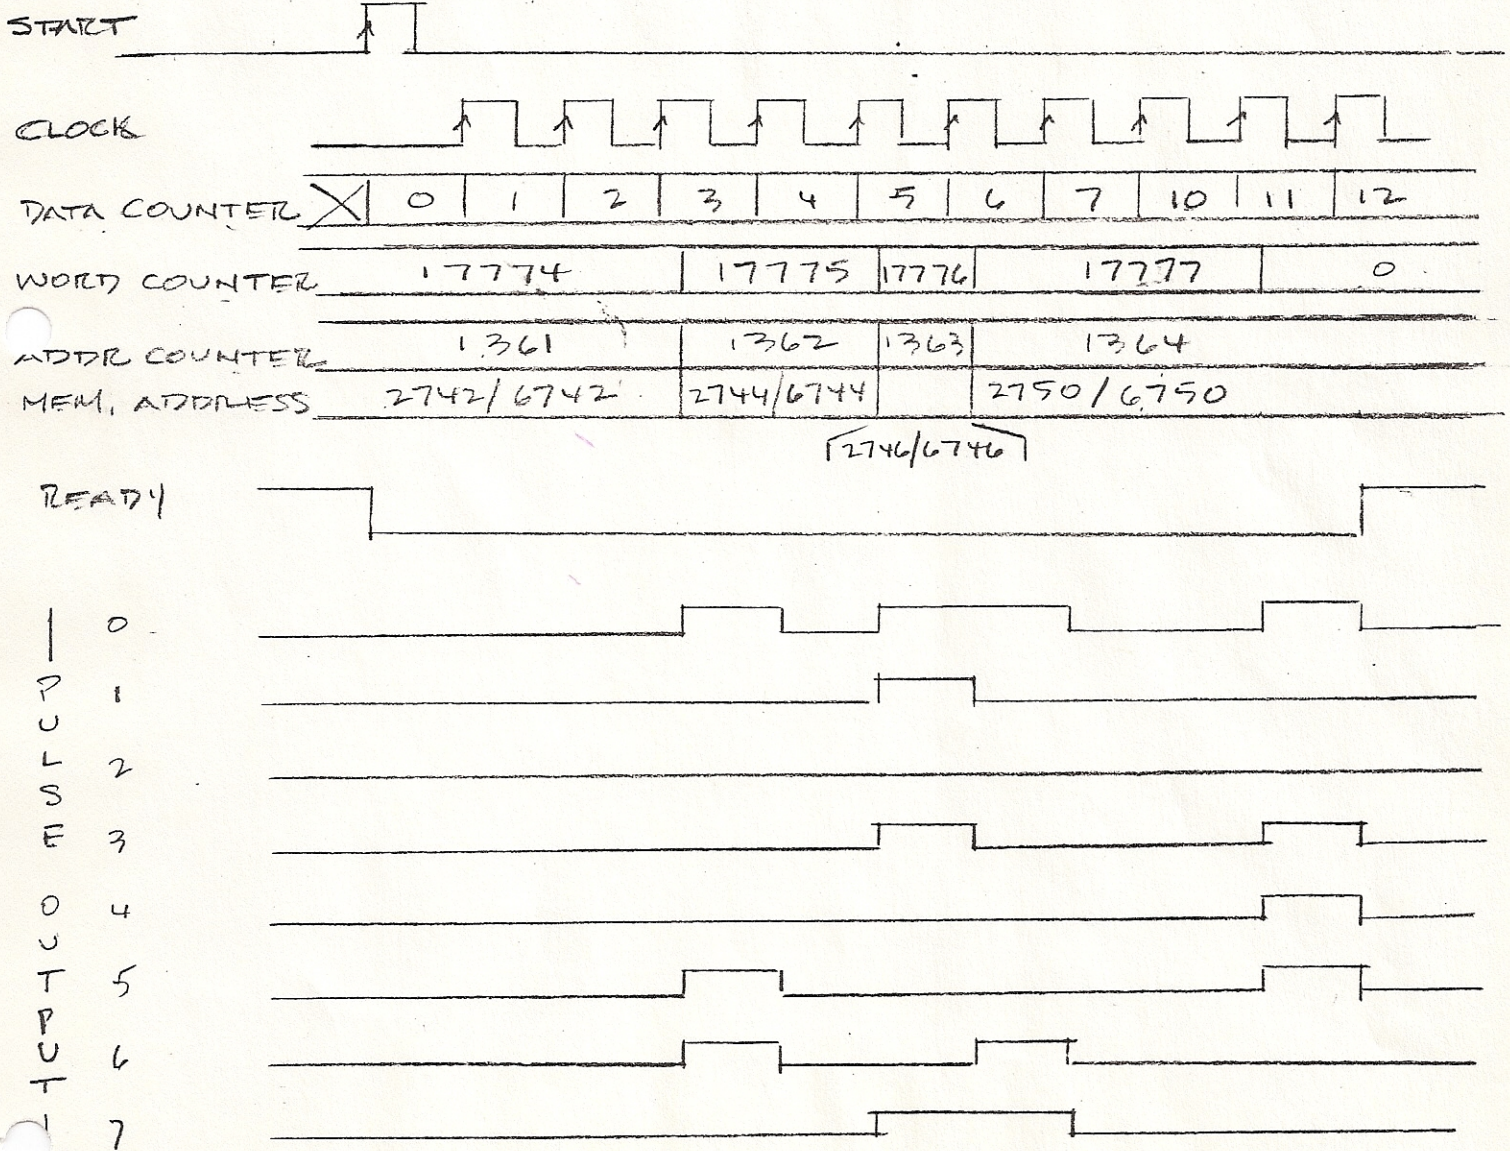 START
CLOCK
DATA COUNTER X 0 1 2 3 4 5 6 7 10 11 12
WORD COUNTER 17774 17775 17776 17777 0
ADDR COUNTER 1361 1362 1363 1364
MEM. ADDRESS 2742/6742 2744/6744 2750/6750
2746/6746
READY
PULSE OUTPUT
0
1
2
3
4
5
6
7